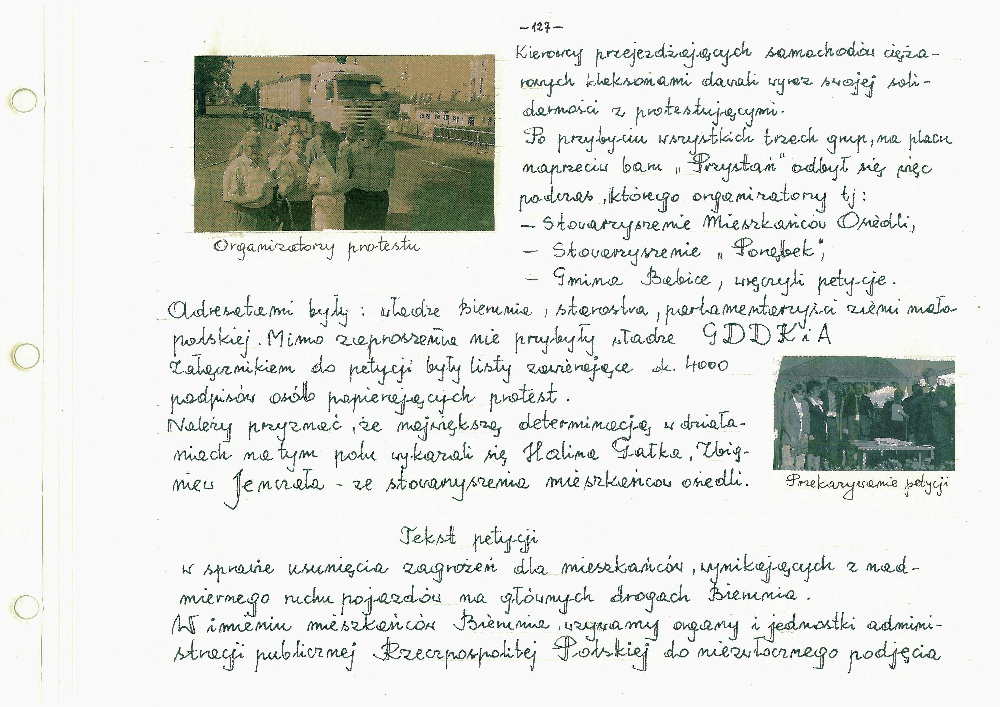 – 127 –
Kierowcy przejeżdżających samochodów cięża-
rowych klaksonami dawali wyraz swojej soli-
darności z protestującymi.
Po przybyciu wszystkich trzech grup, na placu
naprzeciw baru „Przystań" odbył się więc
podczas, którego organizatorzy tj:
– Stowarzyszenie Mieszkańców Osiedli,
– Stowarzyszenie „Porębek",
– Gmina Babice, wręczyli petycje.
Organizatorzy protestu
Adresatami były: władze Bierunia, starostwa, parlamentarzyści ziemi mało
polskiej. Mimo zaproszenia nie przybyły władze GDDKiA
Załącznikiem do petycji były listy zawierające ok. 4000
podpisów osób popierających protest.
Należy przyznać, że największą determinacją w działa-
niach na tym polu wykazali się Halina Gałka, Zbig-
niew Jenczała – ze stowarzyszenia mieszkańców osiedli.
Przekazywanie petycji
Tekst petycji
w sprawie usunięcia zagrożeń dla mieszkańców, wynikających z nad-
miernego ruchu pojazdów na głównych drogach Bierunia.
W imieniu mieszkańców Bierunia wzywamy organy i jednostki admini-
stracji publicznej Rzeczpospolitej Polskiej do niezwłocznego podjęcia